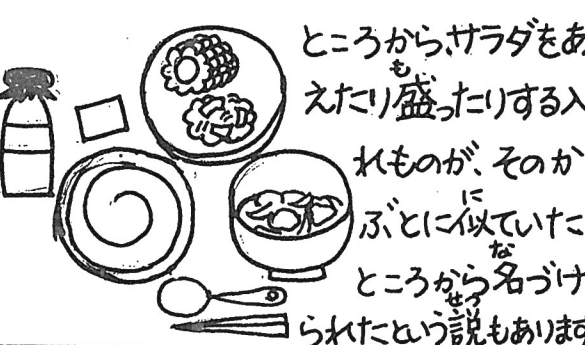 ところから、サラダをあ
えたり盛ったりする入
れものが、そのか
ぶとに似ていた
ところから名づけ
られたという説もあります